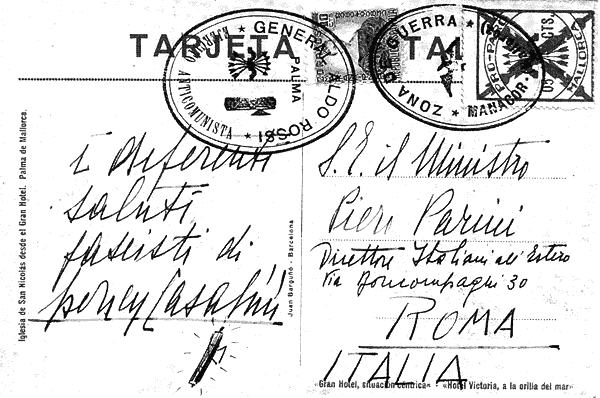 TARJETA
GENERAL ALDO ROSSI
PALMA
ANTICOMUNISTA
ZONA DE GUERRA
MANACOR
PRO-PALMA
MALLORCA
05 CTS.
i deferenti
saluti
fascisti di
S.E. il Ministro
Piero Parini
Direttore Italiani all'Estero
Via Boncompagni 30
ROMA
ITALIA
Iglesia de San Nicolás desde el Gran Hotel. Palma de Mallorca.
Juan Barguñó - Barcelona
«Gran Hotel, situación céntrica» - «Hotel Victoria, a la orilla del mar»